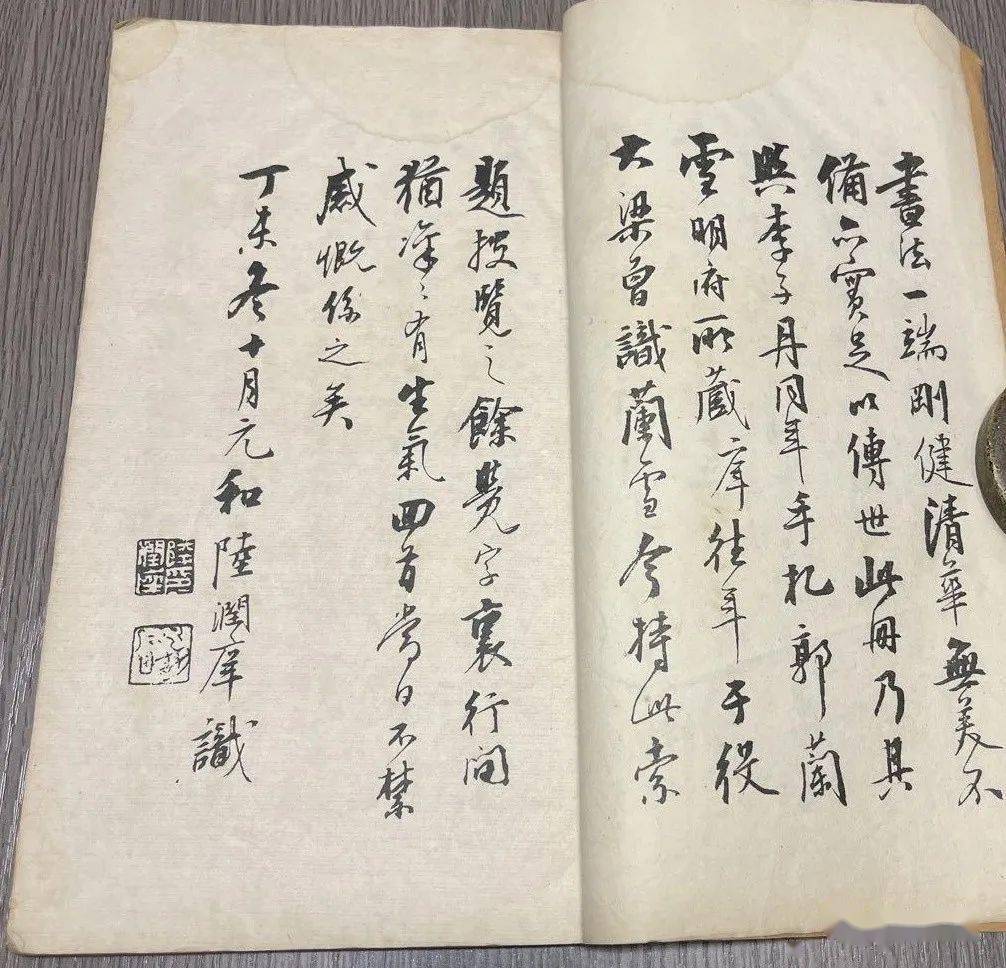 書法一端剛健清華無美不
備亦實足以傳世此冊乃其
與李子丹同年手札郭蘭
雪明府所藏庠往年于役
大梁曾識蘭雪今持此索
題披覽之餘覺字裏行間
猶凜〻有生氣回首當日不禁
感慨係之矣
丁未冬十月元和陸潤庠識